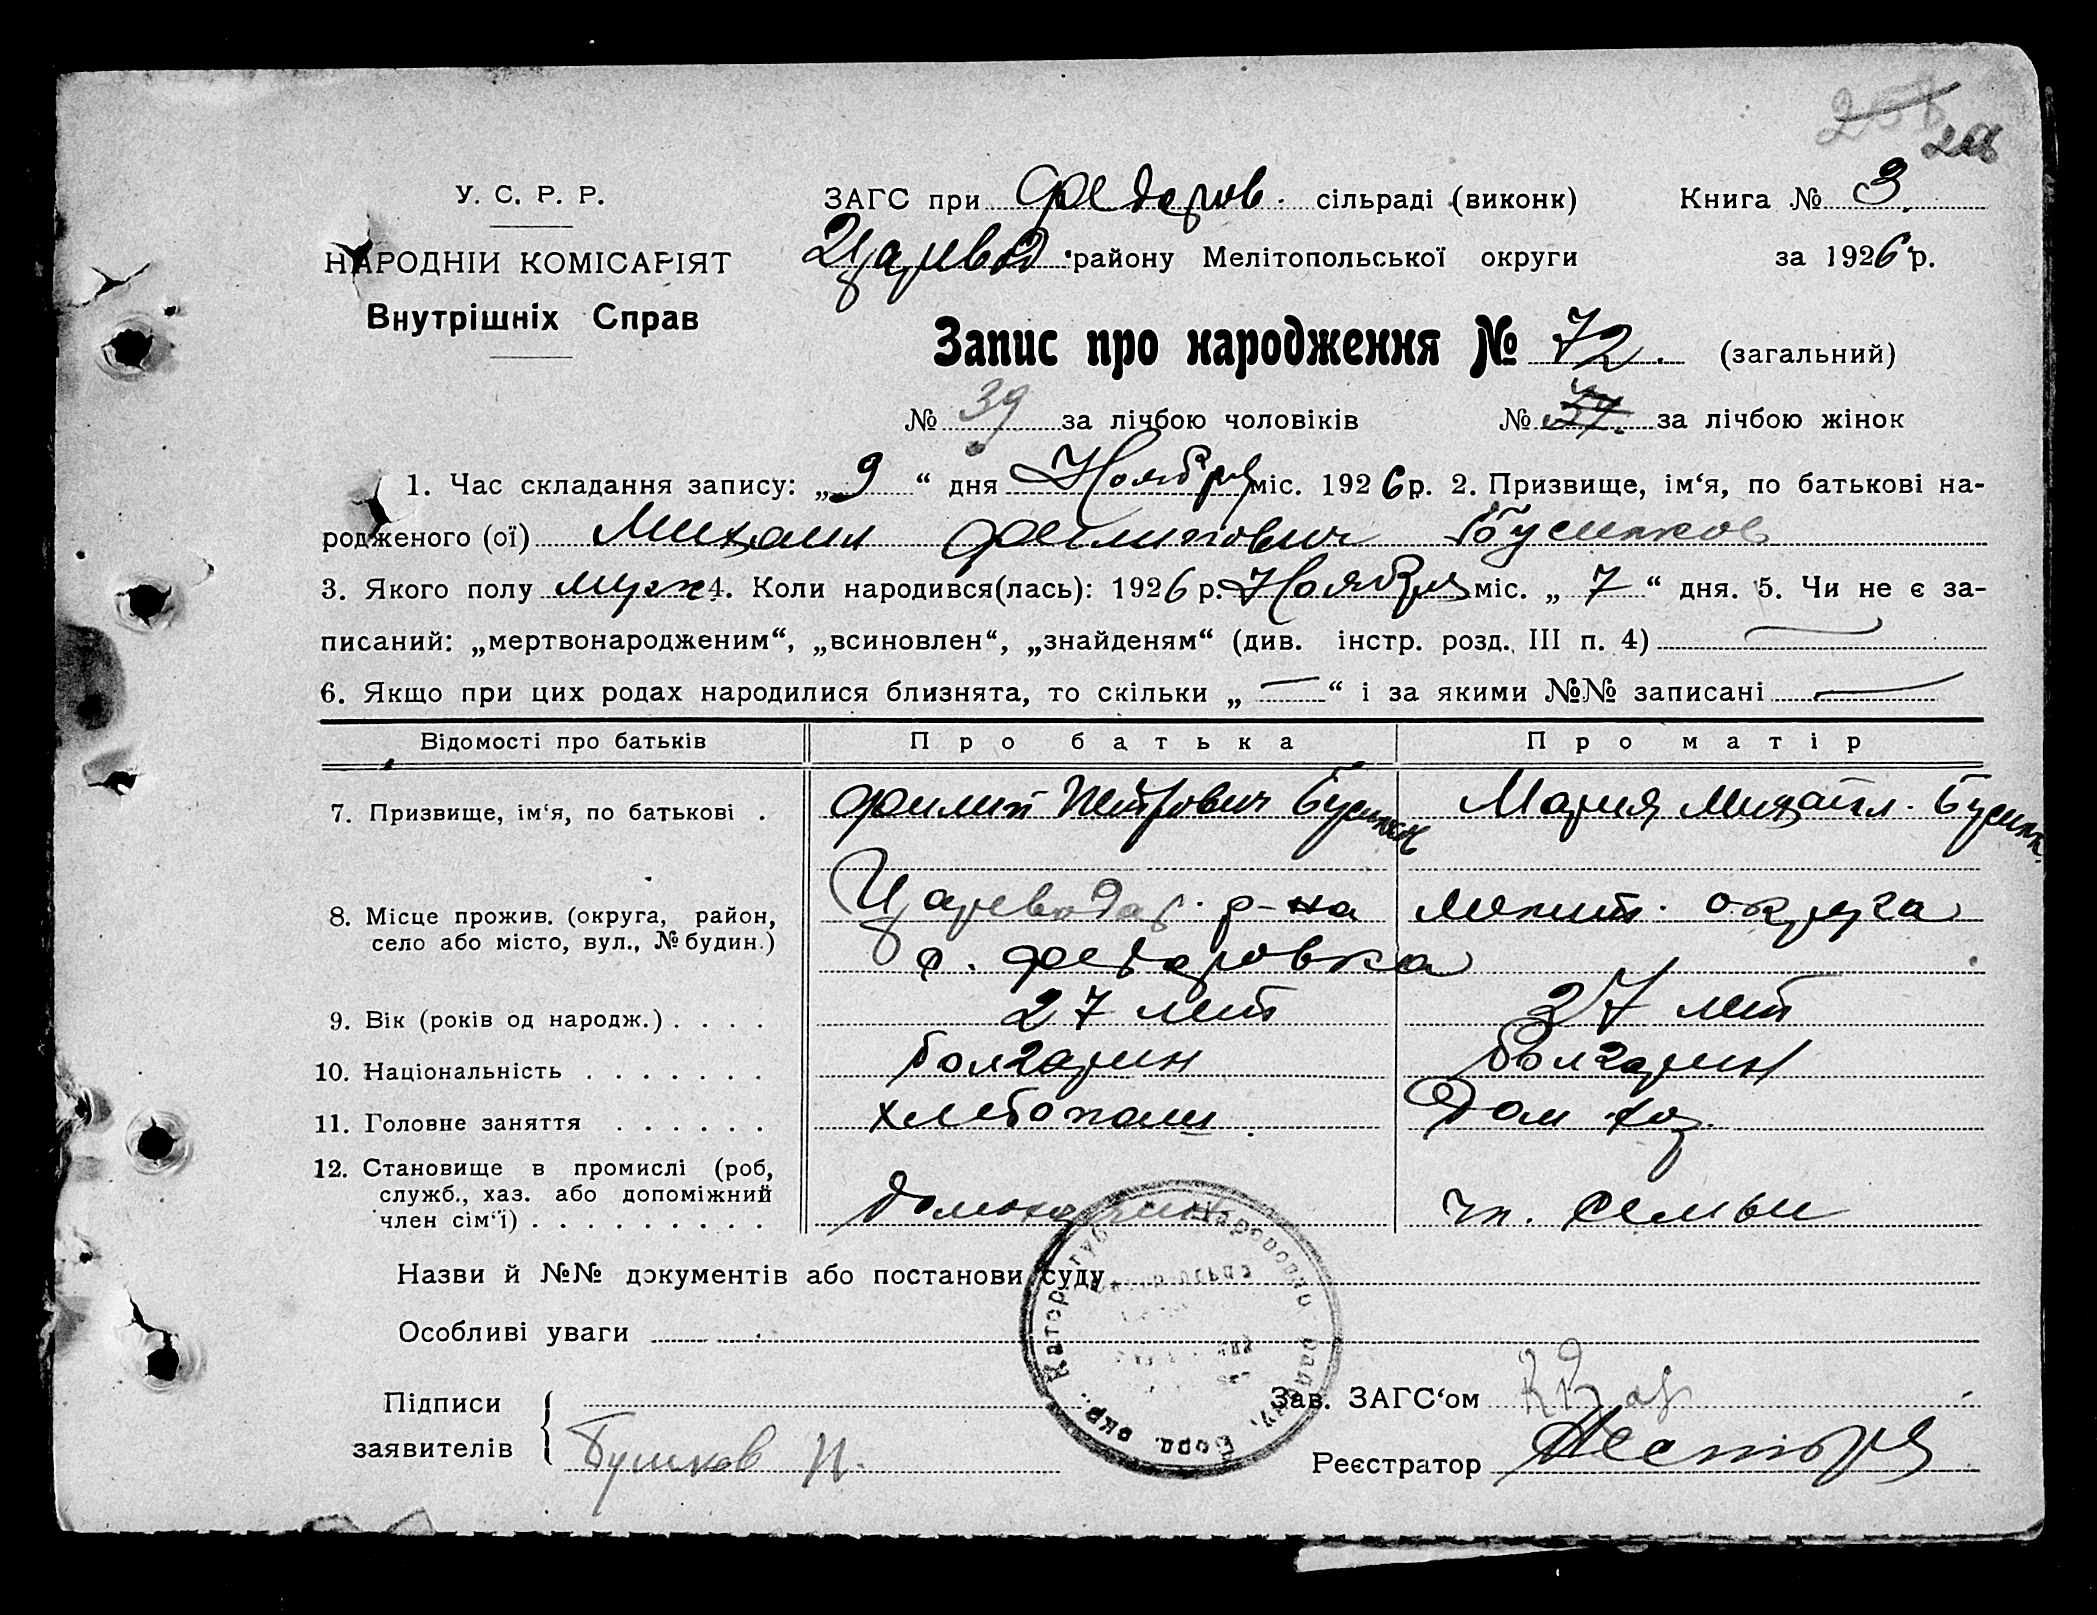 258
У. С. Р. Р.
НАРОДНІЙ КОМІСАРІЯТ
Внутрішніх Справ
ЗАГС при Федоров. сільраді (виконк) Книга № 3.
Царевод району Мелітопольської округи за 1926 р.
Запис про народження № 72. (загальний)
№ 39 за лічбою чоловіків № за лічбою жінок
1. Час складання запису: „9“ дня Ноября міс. 1926 р. 2. Призвище, ім‘я, по батькові на-
родженого (ої) Михаил Филипович
3. Якого полу муж 4. Коли народився(лась): 1926 р. Ноября міс. „7“ дня. 5. Чи не є за-
писаний: „мертвонародженим“, „всиновлен“, „знайденям“ (див. інстр. розд. III п. 4) —
6. Якщо при цих родах народилися близнята, то скільки „—“ і за якими №№ записані —
Відомості про батьків Про батька Про матір
7. Призвище, ім‘я, по батькові . Филип Петрович Мария Михайл.
8. Місце прожив. (округа, район, село або місто, вул., № будин.) Цареводар. р-на Мелит. округа
с. Федоровка
9. Вік (років од народж.) . . . . 27 лет 27 лет
10. Національність . . . . . . . болгарин болгарин
11. Головне заняття . . . . . . хлебопаш. Дом. хоз.
12. Становище в промислі (роб, служб., хаз. або допоміжний член сім‘ї) . . . . . . . . . домохозяин чл. семьи
Назви й №№ документів або постанови суду
Особливі уваги
Підписи
заявителів
Бушков П.
Зав. ЗАГС‘ом
Реєстратор